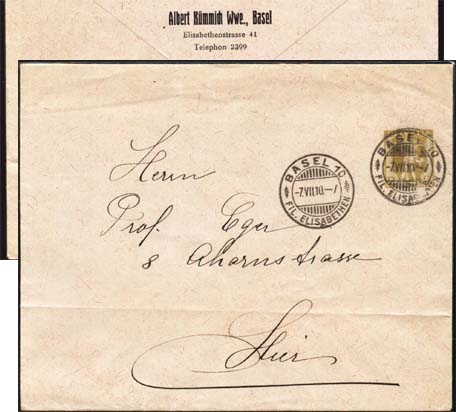 Albert Kümmich Wwe., Basel
Elisabethenstrasse 41
Telephon 2399
Herrn
Prof. Eger
8 Ahornstrasse
Hier
BASEL 10
-7.VII.10.-/
FIL. ELISABETHEN
BASEL 10
-7.VII.10.-/
FIL. ELISABETHEN